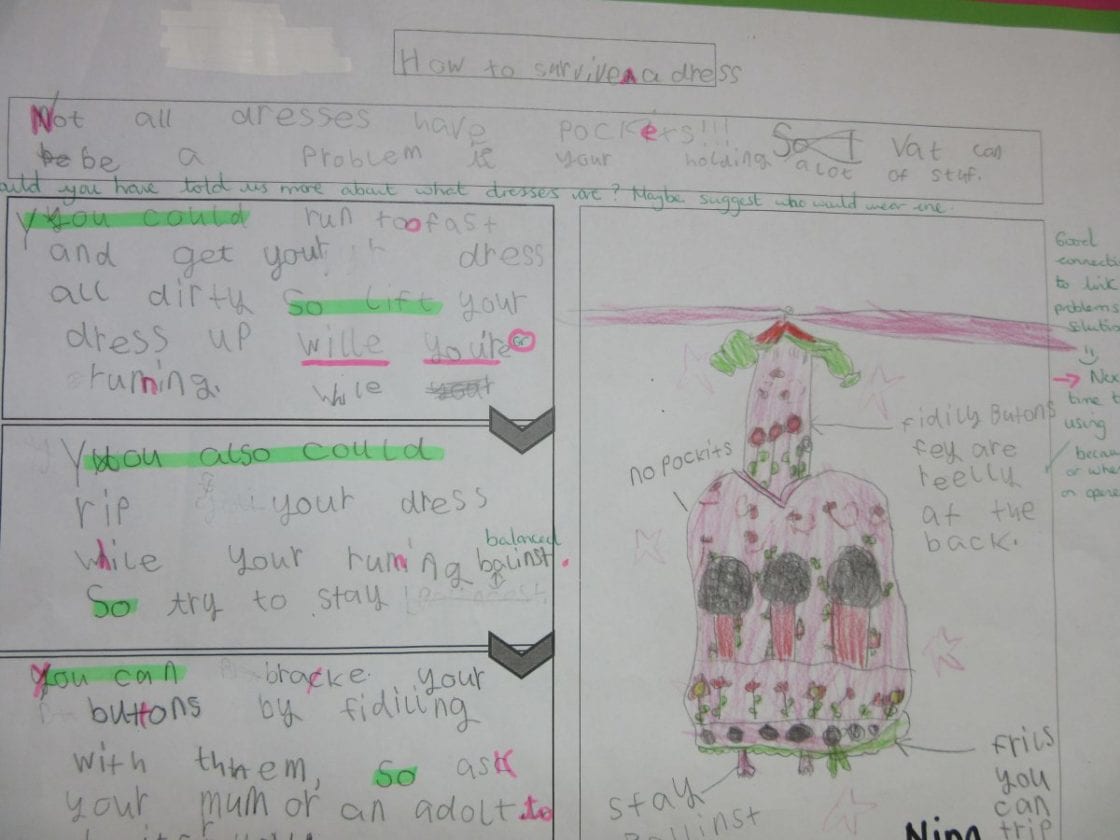 How to survive a dress
Not all dresses have pockets!!! So Vat can
be be a problem if your holding a lot of stuf.
ould you have told us more about what dresses are? Maybe suggest who would wear one.
You could run too fast
and get your dress
all dirty So lift your
dress up wille you're
runing. while
You also could
rip your dress
while your runing balinst.
balanced
So try to stay
You can bracke your
buttons by fidiling
with them, so ask
your mum or an adolt to
no pockits
fidily Butons
fey are
reelly
at the
back.
frils
you
can
trip
stay
Ballinst
Nina
Good
connecti
to link
problem
solutio
→ Nex
time t
using
becau
or whe